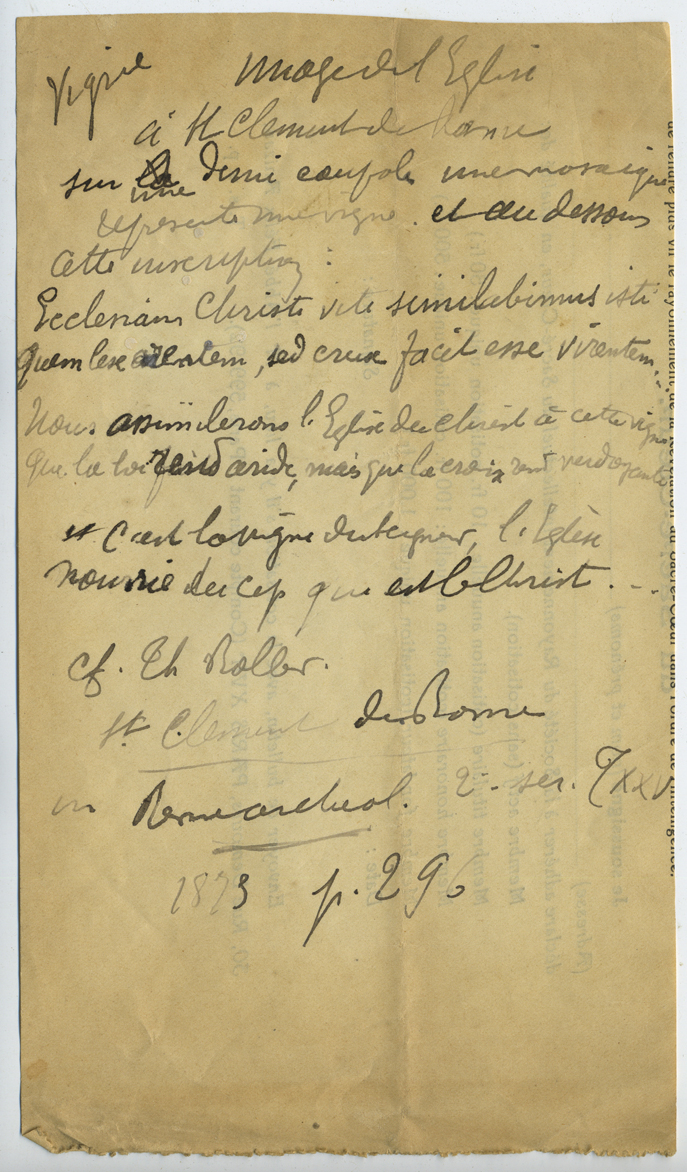 Vigne
Image de l'Eglise
à St Clement de Rome
sur la demi coupole une mosaique
une
represente une vigne. et au dessous
cette inscription :
Ecclesiam Christi viti similabimus isti
quem lex arentem, sed crux facit esse virentem...
Nous assimilerons l'Eglise du Christ à cette vigne
que la loi rend aride, mais que la croix rend verdoyante
et c'est la vigne du Seigneur, l'Eglise
nourrie du cep qui est le Christ. - .
cf. Th Roller.
St. Clement de Rome
in Revue archeol. 2e ser. T XXV
1873 p. 296
de rendre plus vif le rayonnement de la Révélation du Sacré-Cœur dans l'ordre de l'intelligence.